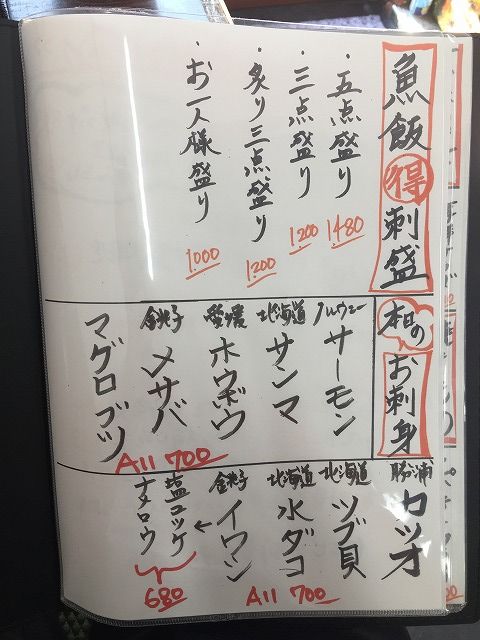 魚飯得刺盛
・五点盛り 1480
・三点盛り 1200
・炙り三点盛り 1200
・お一人様盛り 1000
本日のお刺身
ノルウェー サーモン
北海道 サンマ
愛媛 ホウボウ
銚子 メサバ
マグロブツ
All 700
勝浦 カツオ
北海道 ツブ貝
北海道 水ダコ
銚子 イワシ
All 700
← 塩ユッケ
ナメロウ
680